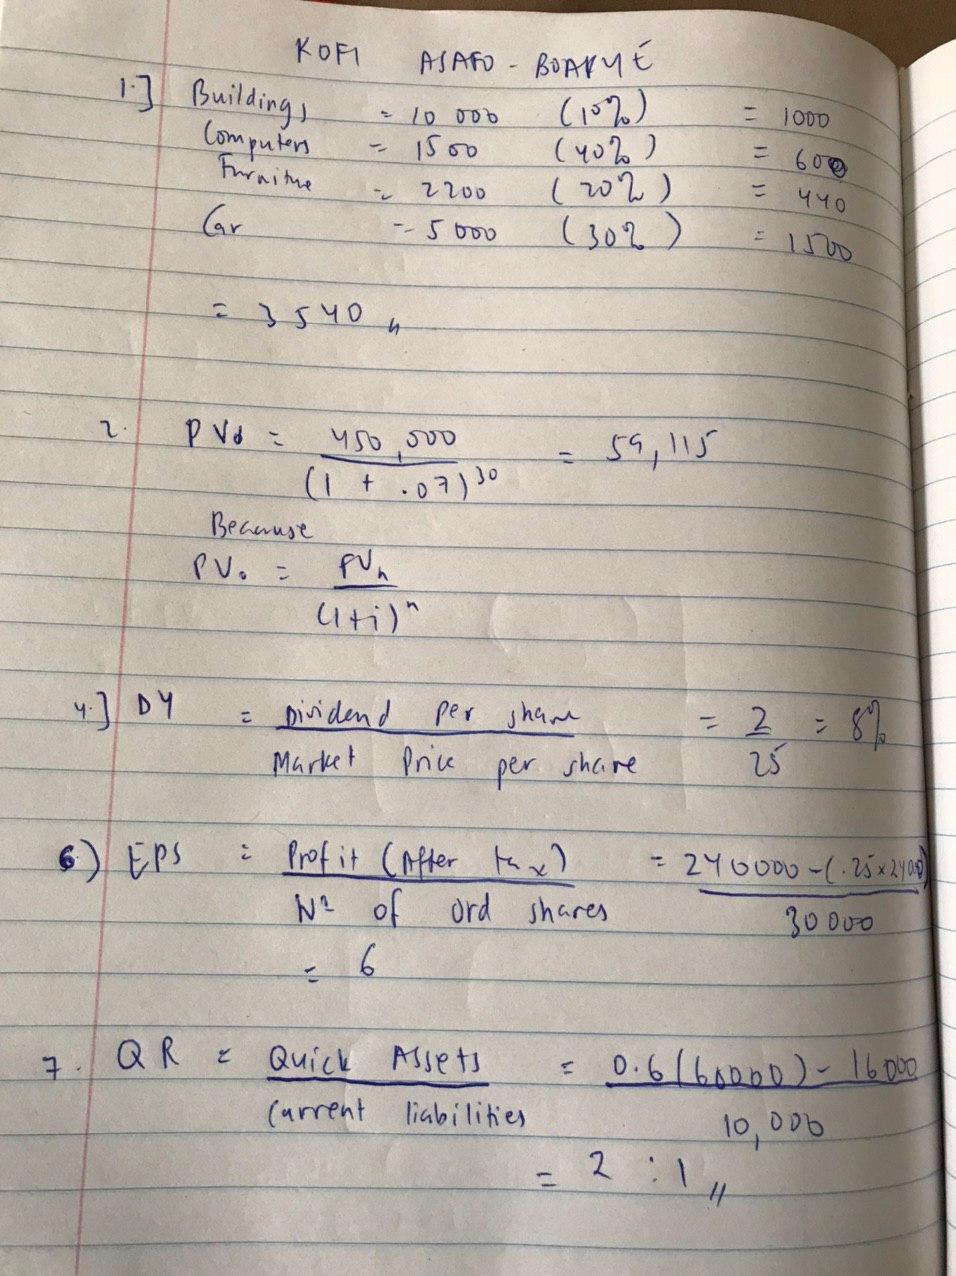 KOFI ASAFO - BOAKYE
1.] Buildings = 10 000 (10%) = 1000
Computers = 1500 (40%) = 600
Furniture = 2200 (20%) = 440
Car = 5000 (30%) = 1500
= 3540 "
2. PVo = 450,000 / (1 + .07)^30 = 59,115
Because
PVo = FVn / (1+i)^n
4.] DY = Dividend per share / Market Price per share = 2 / 25 = 8%
6.) EPS = Profit (After tax) / No of ord shares = 240000 - (.25 x 24000) / 30000
= 6
7. QR = Quick Assets / Current liabilities = 0.6 (60000) - 16000 / 10,000
= 2 : 1 "